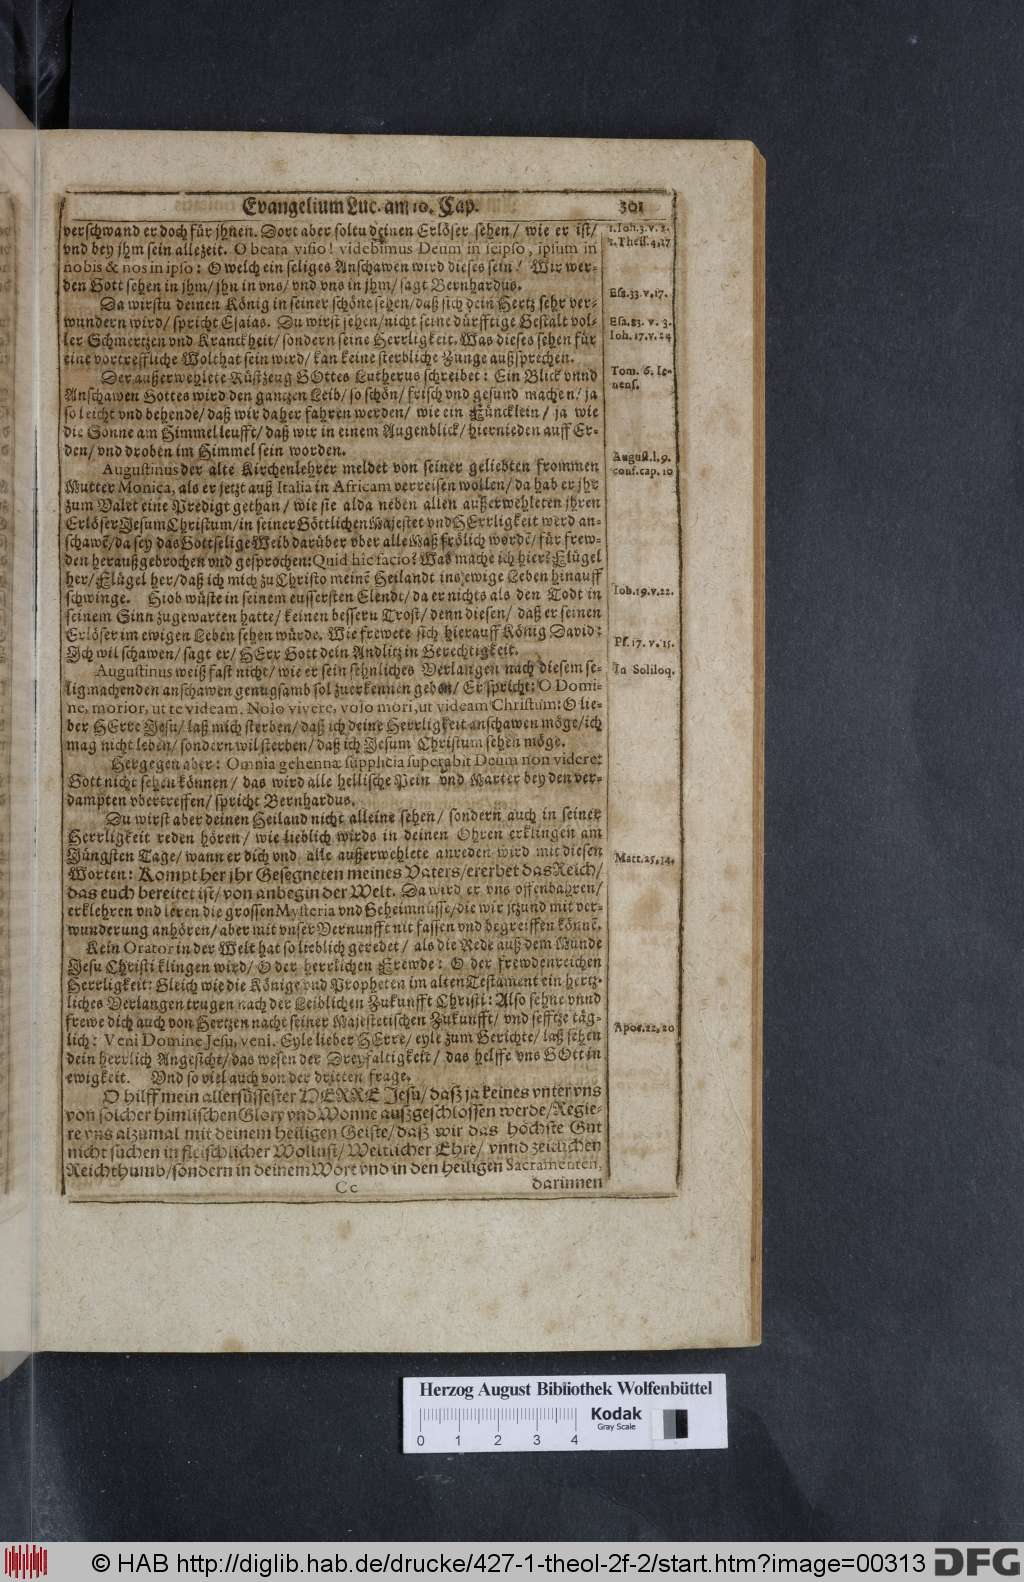 Evangelium Luc. am 10. Cap. 301
verschwand er doch für jhnen. Dort aber soltu deinen Erlöser sehen/ wie er ist/
vnd bey jhm sein allezeit. O beata visio! videbimus Deum in seipso, ipsum in
nobis & nos in ipso: O welch ein seliges Anschawen wird dieses sein! Wir wer-
den Gott sehen in jhm/ jhn in vns/ vnd vns in jhm/ sagt Bernhardus.
Da wirstu deinen König in seiner schöne sehen/ daß sich dein Hertz sehr ver-
wundern wird/ spricht Esaias. Du wirst sehen/ nicht seine dürfftige Gestalt vol-
ler Schmertzen vnd Kranckheit/ sondern seine Herrligkeit. Was dieses sehen für
eine vortreffliche Wolthat sein wird/ kan keine sterbliche Zunge außsprechen.
Der außerwehlete Rüstzeug GOttes Lutherus schreibet: Ein Blick vnnd
Anschawen Gottes wird den gantzen Leib/ so schön/ frisch vnd gesund machen/ ja
so leicht vnd behende/ daß wir daher fahren werden/ wie ein Füncklein/ ja wie
die Sonne am Himmel leufft/ daß wir in einem Augenblick/ hiernieden auff Er-
den/ vnd droben im Himmel sein worden.
Augustinus der alte Kirchenlehrer meldet von seiner geliebten frommen
Mutter Monica, als er jetzt auß Italia in Africam verreisen wollen/ da hab er jhr
zum Valet eine Predigt gethan/ wie sie alda neben allen außerwehleten jhren
Erlöser Jesum Christum/ in seiner Göttlichen Majestet vnd HErrligkeit werd an-
schawē/ da sey das Gottselige Weib darüber vber alle Maß frölich wordē/ für frew-
den heraußgebrochen vnd gesprochen: Quid hic facio? Was mache ich hier? Flügel
her/ Flügel her/ daß ich mich zu Christo meinē Heilandt ins ewige Leben hinauff
schwinge. Hiob wüste in seinem eussersten Elendt/ da er nichts als den Todt in
seinem Sinn zugewarten hatte/ keinen bessern Trost/ denn diesen/ daß er seinen
Erlöser im ewigen Leben sehen würde. Wie frewete sich hierauff König David:
Ich wil schawen/ sagt er/ HErr Gott dein Andlitz in Gerechtigkeit.
Augustinus weiß fast nicht/ wie er sein sehnliches Verlangen nach diesem se-
ligmachenden anschawen genugsamb sol zuerkennen geben/ Er spricht: O Domi-
ne, morior, ut te videam. Nolo vivere, volo mori, ut videam Christum: O lie-
ber HErre Jesu/ laß mich sterben/ daß ich deine Herrligkeit anschawen möge/ ich
mag nicht leben/ sondern wil sterben/ daß ich Jesum Christum sehen möge.
Hergegen aber: Omnia gehennæ supplicia superabit Deum non videre:
Gott nicht sehen können/ das wird alle hellische Pein vnd Marter bey den ver-
dampten vbertreffen/ spricht Bernhardus.
Du wirst aber deinen Heiland nicht alleine sehen/ sondern auch in seiner
Herrligkeit reden hören/ wie lieblich wirds in deinen Ohren erklingen am
Jüngsten Tage/ wann er dich vnd alle außerwehlete anreden wird mit diesen
Worten: Kompt her jhr Gesegneten meines Vaters/ ererbet das Reich/
das euch bereitet ist/ von anbegin der Welt. Da wird er vns offenbahren/
erklehren vnd leren die grossen Mysteria vnd Geheimnüsse/ die wir jtzund mit ver-
wunderung anhören/ aber mit vnser Vernunfft nit fassen vnd begreiffen könnē.
Kein Orator in der Welt hat so lieblich geredet/ als die Rede auß dem Munde
Jesu Christi klingen wird/ O der herrlichen Frewde: O der frewdenreichen
Herrligkeit: Gleich wie die Könige vnd Propheten im alten Testament ein hertz-
liches Verlangen trugen nach der Leiblichen Zukunfft Christi: Also sehne vnnd
frewe dich auch von Hertzen nach seiner Majestetischen Zukunfft/ vnd seufftze täg-
lich: Veni Domine Jesu, veni. Eyle lieber HErre/ eyle zum Gerichte/ laß sehen
dein herrlich Angesicht/ das wesen der Dreyfaltigkeit/ das helffe vns GOtt in
ewigkeit. Vnd so viel auch von der dritten frage.
O hilff mein allersüssester HERRE Jesu/ daß ja keines vnter vns
von solcher himlischen Glory vnd Wonne außgeschlossen werde/ Regie-
re vns alzumal mit deinem heiligen Geiste/ daß wir das höchste Gut
nicht suchen in fleischlicher Wollust/ Weltlicher Ehre/ vnnd zeitlichen
Reichthumb/ sondern in deinem Wort vnd in den heiligen Sacramenten,
Cc darinnen
1. Ioh. 3. v. 2.
1. Thess. 4, 17
Esa. 33. v. 17.
Esa. 53. v. 3.
Ioh. 17. v. 24
Tom. 6. Ie-
nens.
August. l. 9.
conf. cap. 10
Iob. 19. v. 22.
Ps. 17. v. 15.
In Soliloq.
Matt. 25, 14.
Apoc. 22, 20
Herzog August Bibliothek Wolfenbüttel
Kodak
Gray Scale
0 1 2 3 4
© HAB http://diglib.hab.de/drucke/427-1-theol-2f-2/start.htm?image=00313 DFG